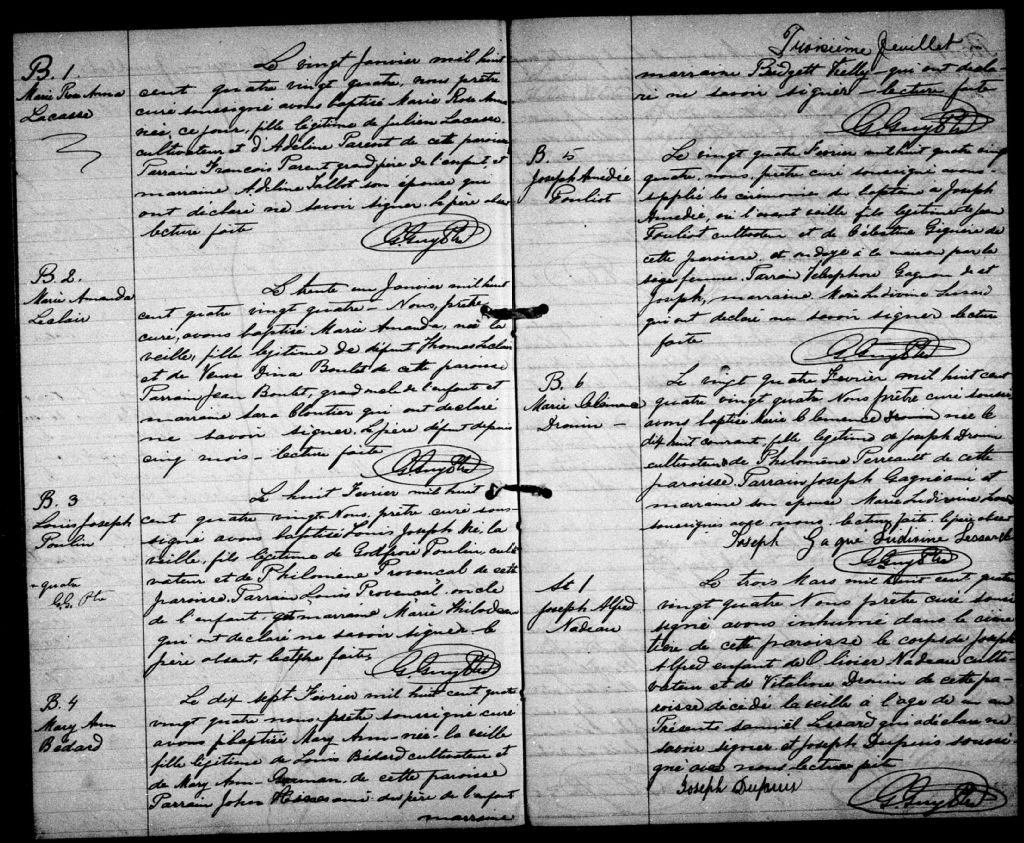 B. 1
Marie Rose Anna
Lacasse
Le vingt Janvier mil huit
cent quatre vingt quatre, nous prêtre
curé soussigné avons baptisé Marie Rose Anna
née, ce jour, fille légitime de Julien Lacasse
cultivateur et d'Adéline Parent de cette paroisse
Parrain François Parent grand père de l'enfant et
marraine Adeline Talbot son épouse qui
ont déclaré ne savoir signer. Le père absent
lecture faite
G. Guy Ptre
B. 2
Marie Amanda
Leclair
Le trente un Janvier mil huit
cent quatre vingt quatre - Nous, prêtre
curé, avons baptisé Marie Amanda, née la
veille, fille légitime de défunt Thomas Leclair
et de Veuve Dina Boulet de cette paroisse
Parrain Jean Boulet, grand de l'enfant et
marraine Sara Cloutier qui ont déclaré
ne savoir signer. Le père défunt depuis
cinq mois - lecture faite
G. Guy Ptre
B. 3
Louis Joseph
Poulin
+ quatre
G.G. Ptre
Le huit Fevrier mil huit
cent quatre vingt Nous, prêtre curé sous-
signé avons baptisé Louis Joseph né, la
veille, fils légitime de Godfroie Poulin, culti
vateur et de Philomène Provencal de cette
paroisse. Parrain Louis Provencal, oncle
de l'enfant, et marraine Marie Thibodeau
qui ont déclaré ne savoir signer - le
père absent, lecture faite,
G. Guy Ptre
B. 4
Mary Ann
Bédard
Le dix sept Fevrier mil huit cent quatre
vingt quatre nous prêtre soussigné curé
avons baptisé Mary Ann née la veille
fille légitime de Louis Bédard cultivateur et
de Mary Ann de cette paroisse
Parrain John ami du père de l'enfant
marraine
Troisième feuillet
marraine Bridgett Kelly - qui ont décla
ré ne savoir signer - lecture faite
G. Guy Ptre
B. 5
Joseph Amedée
Pouliot
Le vingt quatre Fevrier mil huit quatre vingt
quatre, nous, prêtre curé soussigné avons
supplée les cérémonies du baptême a Joseph
Amedée, né l'avant veille fils légitime de Jean
Pouliot cultivateur et de Célestine Giguère de
cette paroisse, et ondoyé à la maison par la
sage femme. Parrain Télesphore Gagnon de st
Joseph, marraine Marie Ludivine Lessard
qui ont déclaré ne savoir signer lecture
faite
G. Guy Ptre
B. 6
Marie Clemence
Drouin -
Le vingt quatre Fevrier mil huit cent
quatre vingt quatre Nous prêtre curé soussi
avons baptisé Marie Clemence Drouin née le
dix huit courant, fille légitime de Joseph Drouin
cultivateur de Philomène Perreault de cette
paroisse Parrain Joseph Gagné ami et
marraine son épouse Marie Ludivine
soussignés avec nous. lecture faite. le père absent
Joseph Gagne Ludivine Lessard
G. Guy Ptre
St 1
Joseph Alfred
Nadeau
Le trois Mars mil huit cent quatre
vingt quatre Nous prêtre curé sous
signé avons inhumé dans le cime
tière de cette paroisse le corps de Joseph
Alfred enfant de Olivier Nadeau culti-
vateur et de Vitaline Drouin de cette pa-
roisse décidé la veille à l'age de un an
Présents Samuel Lessard qui a déclaré ne
savoir signer et Joseph Dupuis soussi-
gné avec nous lecture faite
Joseph Dupuis
G. Guy Ptre